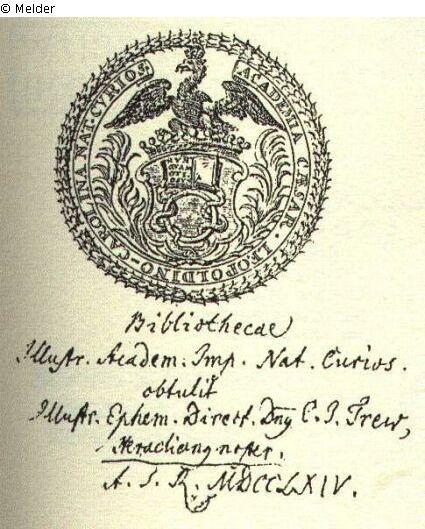 © Melder
ACADEMIA CÆSAR. LEOPOLDINO-CAROLINA NAT. CVRIOS.
Bibliothecae
Illustr. Academ. Imp. Nat. Curios.
obtulit
Illustr. Ephem. Direct. Dnq C. J. Trew,
noster.
A. S. R. MDCCLXIV.